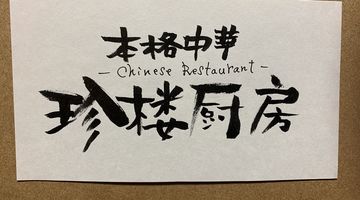 本格中華
- Chinese Restaurant -
珍楼厨房